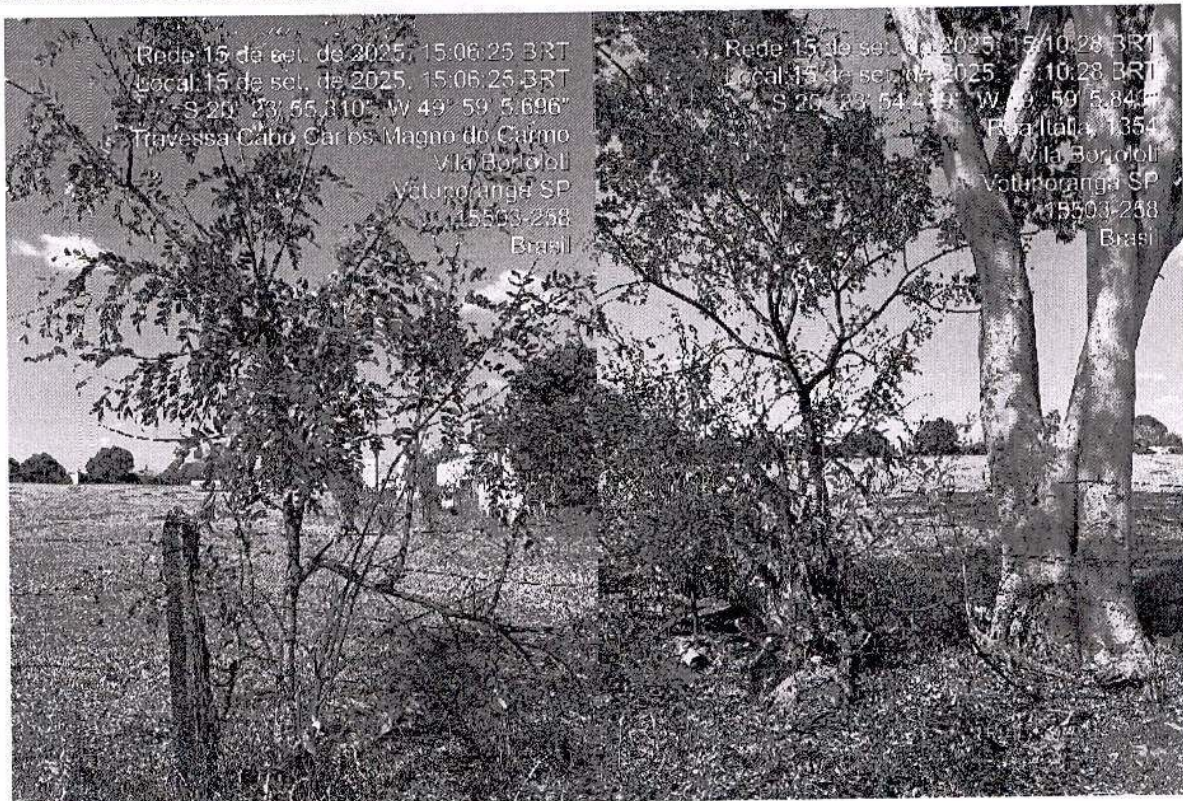 Rede:15 de set. de 2025, 15:06:25 BRT
Local:15 de set. de 2025, 15:06:25 BRT
S 20° 23' 55,810" W 49° 59' 5,696"
Travessa Cabo Carlos Magno do Carmo
Vila Bortololi
Votuporanga SP
15503-258
Brasil
Rede:15 de set. de 2025, 15:10:28 BRT
Local:15 de set. de 2025, 15:10:28 BRT
S 20° 23' W 49° 59'
Rua Itália, 1354
Vila Bortololi
Votuporanga SP
15503-258
Brasil